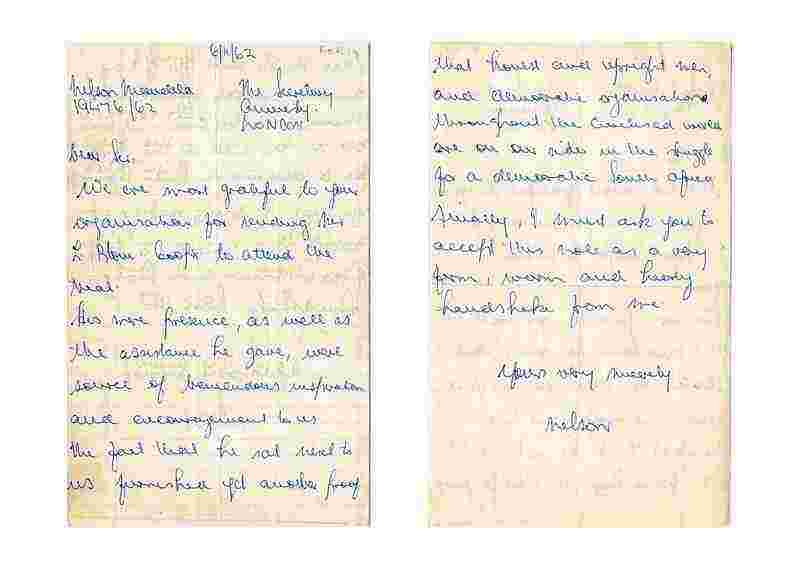 6/11/62
Nelson Mandela
19476/62
The Secretary
Amnesty.
LONDON
Dear Sir,
We are most grateful to your
organisation for sending Mr
L Blom-Cooper to attend the
trial.
His mere presence, as well as
the assistance he gave, were
source of tremendous inspiration
and encouragement to us
The fact that he sat next to
us furnished yet another proof
that honest and upright men,
and democratic organisations
throughout the civilised world
are on our side in the struggle
for a democratic South Africa
Finally, I must ask you to
accept this note as a very
firm, warm and hearty
handshake from me.
Yours very sincerely
Nelson